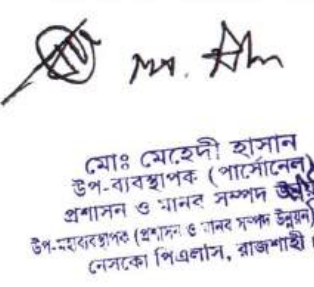 মোঃ মেহেদী হাসান
উপ-ব্যবস্থাপক (পার্সোনেল)
প্রশাসন ও মানব সম্পদ
উপ-মহাব্যবস্থাপক (প্রশাসন ও মানব সম্পদ উন্নয়ন)
নেসকো পিএলসি, রাজশাহী।